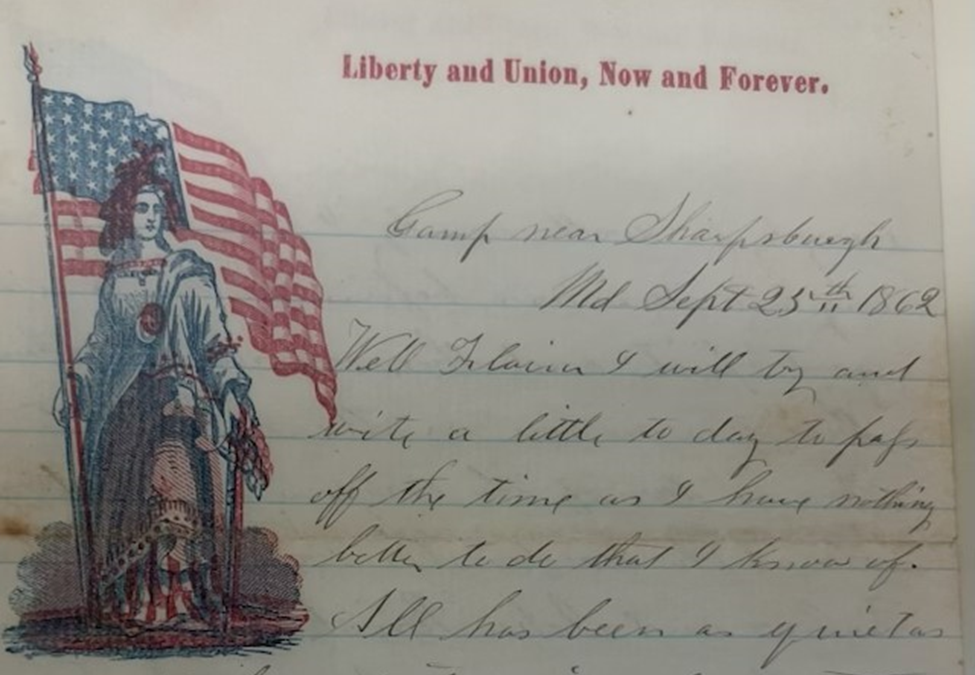 Liberty and Union, Now and Forever.
Camp near Sharpsburgh
Md Sept 25th 1862
Well I will try and
write a little to day to pass
off the time as I have nothing
better to do that I know of.
All has been as quiet as